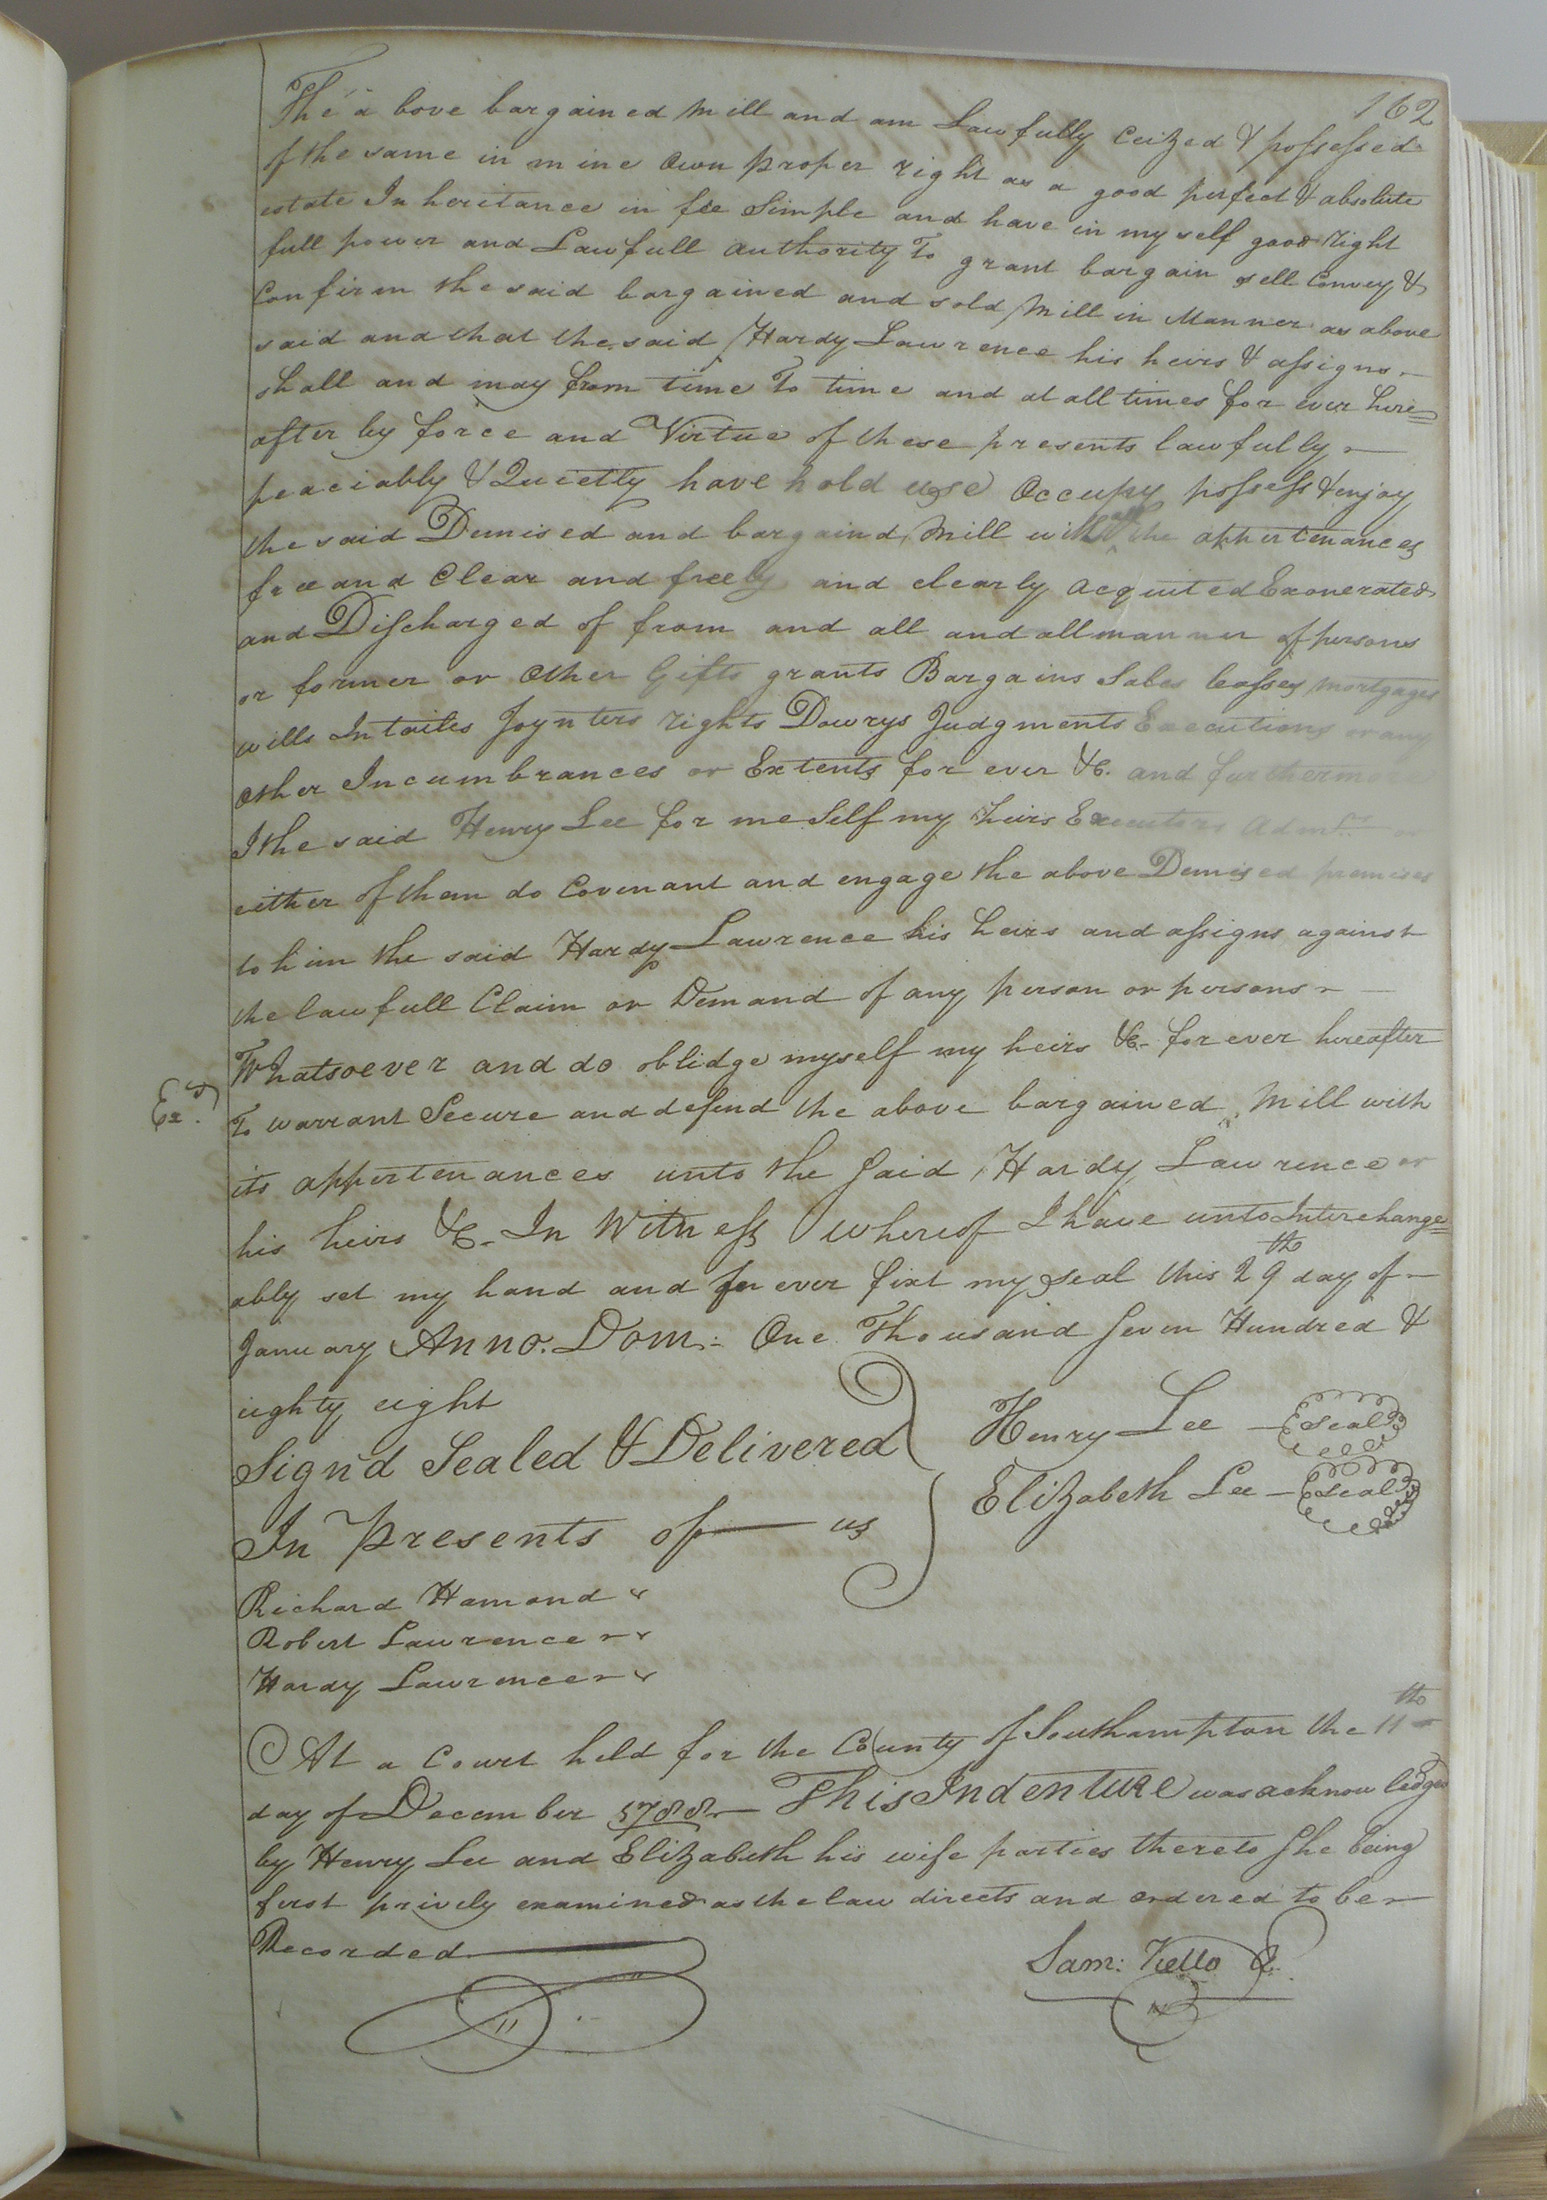 162
The a bove bargained Mill and am Lawfully Ceized & possessed
of the same in mine Own proper right as a good perfect & absolute
estate Inheritance in fee Simple and have in my self good right
full power and Lawfull authority To grant bargain sell Convey &
Confirm the said bargained and sold Mill in Manner as above
said and that the said Hardy Lawrence his heirs & assigns
shall and may from time To time and at all times for ever here=
after by force and Virtue of these presents lawfully
peaciably & Quietly have hold use Occupy possess & enjoy
the said Demised and bargaind Mill with all the appertenances
free and Clear and freely and clearly acquited Exonerated
and Discharged of from and all and all manner of persons
or former or Other Gifts grants Bargains Sales leasses mortgages
wills Intailes Joynters rights Dowrys Judgments Executions or any
Other Incumbrances or Extents for ever &c. and furthermore
I the said Henry Lee for me Self my heirs Executors Admrs or
either of them do Covenant and engage the above Demised premises
to him the said Hardy Lawrence his heirs and assigns against
the lawfull Claim or Demand of any person or persons
Whatsoever and do oblidge myself my heirs &c. for ever hereafter
Exd.
To warrant Secure and defend the above bargained Mill with
its appertenances unto the Said Hardy Lawrence or
his heirs &c. In Witness whereof I have unto Interchange=
ably set my hand and for ever fixt my seal this 29th day of
January Anno. Dom: One Thousand Seven Hundred &
eighty eight
Sign'd Sealed & Delivered
In presents of us
Henry Lee seal
Elizabeth Lee seal
Richard Hamond
Robert Lawrence
Hardy Lawrence
At a Court held for the County of Southampton the 11th
day of December 1788 This Indenture was acknowledged
by Henry Lee and Elizabeth his wife parties thereto She being
first privily examined as the law directs and ordered to be
Recorded
Sam: Kello